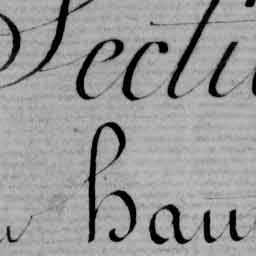 Secti
hau